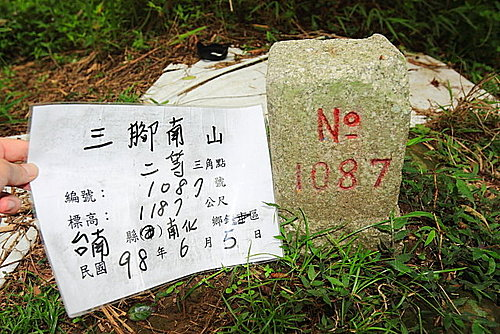 三腳南山
二等三角點
編號：1087號
標高：1187公尺
台南縣(市)南化鄉鎮市區
民國98年6月5日
Nº
1087